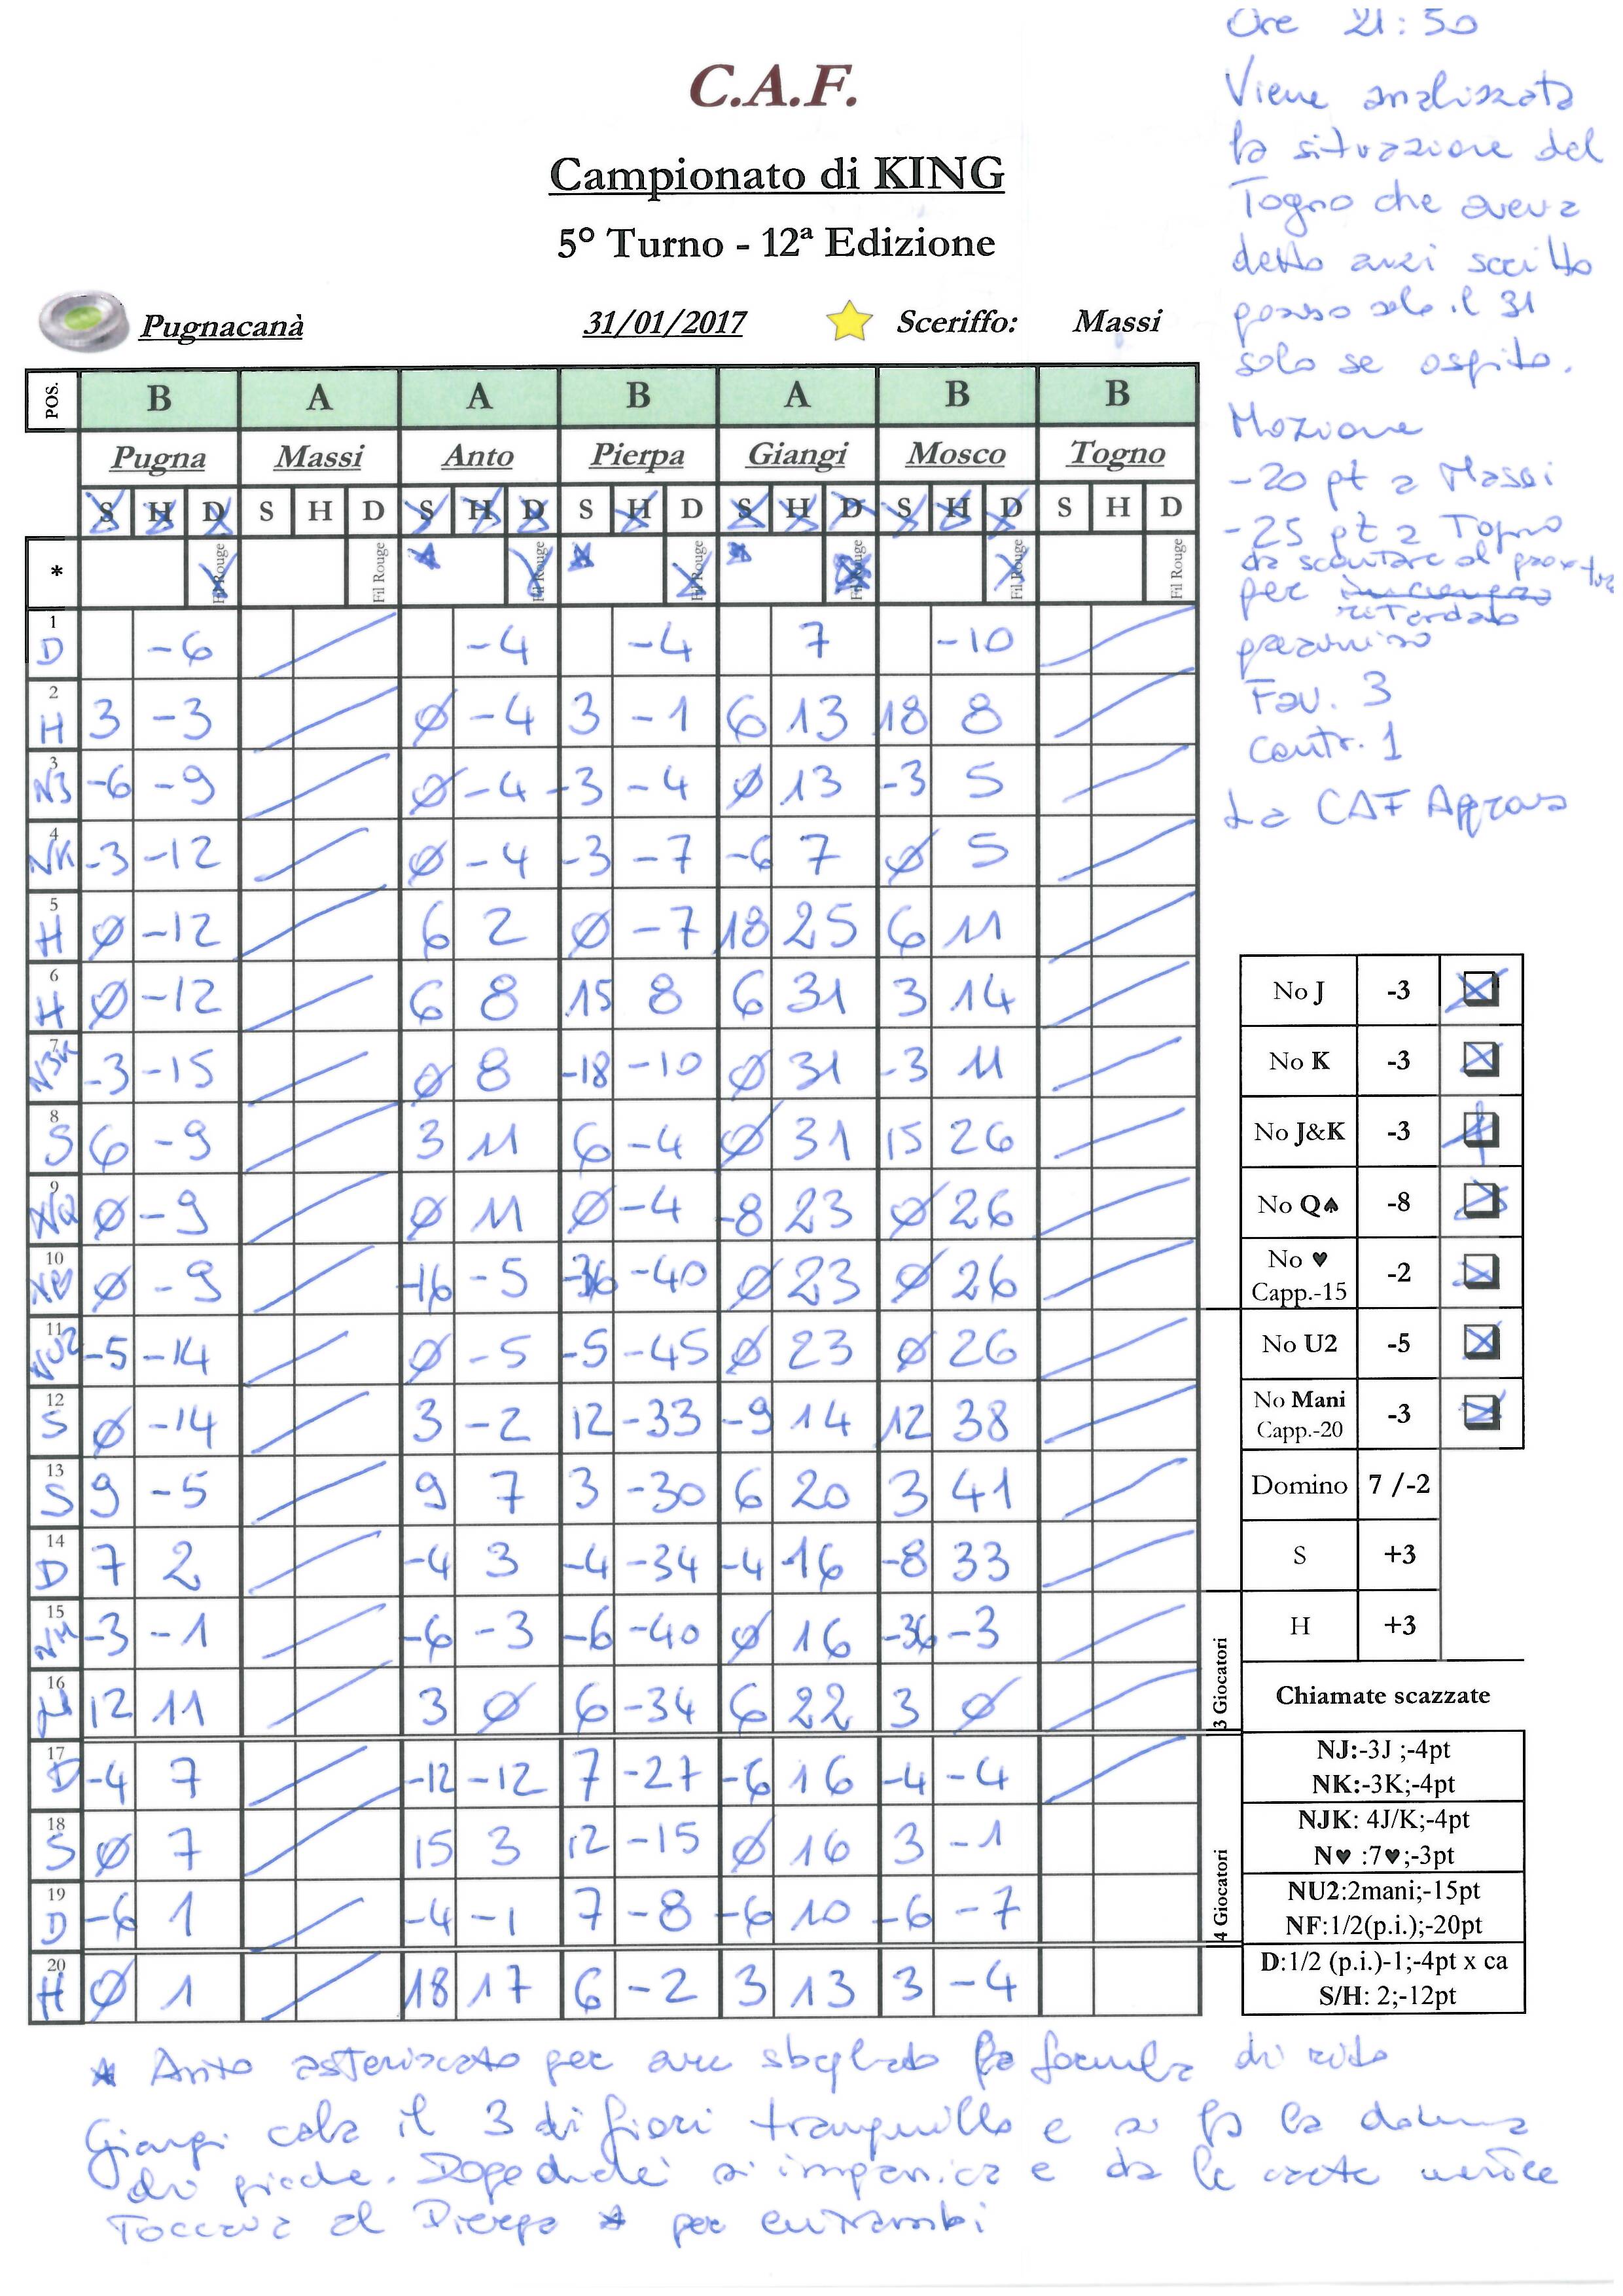 Ore 21:50
Viene analizzata
la situazione del
Togno che aveva
detto anzi scritto
posso solo il 31
solo se ospito.
Mozione
-20 pt a Massi
-25 pt a Togno
da scontare al
per
ritardato
preavviso
Fav. 3
Contr. 1
La CAF
C.A.F.
Campionato di KING
5° Turno - 12ª Edizione
Pugnacanà 31/01/2017 Sceriffo: Massi
POS. B A A B A B B
Pugna Massi Anto Pierpa Giangi Mosco Togno
S H D S H D S H D S H D S H D S H D S H D
* Fil Rouge Fil Rouge Fil Rouge Fil Rouge Fil Rouge Fil Rouge Fil Rouge
1 D -6 -4 -4 7 -10
2 H 3 -3 ø -4 3 -1 6 13 18 8
3 N3 -6 -9 ø -4 -3 -4 ø 13 -3 5
4 NK -3 -12 ø -4 -3 -7 -6 7 ø 5
5 H ø -12 6 2 ø -7 18 25 6 11
6 H ø -12 6 8 15 8 6 31 3 14
7 N3K -3 -15 ø 8 -18 -10 ø 31 -3 11
8 S 6 -9 3 11 6 -4 ø 31 15 26
9 NQ ø -9 ø 11 ø -4 -8 23 ø 26
10 N♥ ø -9 -16 -5 -36 -40 ø 23 ø 26
11 NU2 -5 -14 ø -5 -5 -45 ø 23 ø 26
12 S ø -14 3 -2 12 -33 -9 14 12 38
13 S 9 -5 9 7 3 -30 6 20 3 41
14 D 7 2 -4 3 -4 -34 -4 16 -8 33
15 NM -3 -1 -6 -3 -6 -40 ø 16 -36 -3
16 H 12 11 3 ø 6 -34 6 22 3 ø
17 D -4 7 -12 -12 7 -27 -6 16 -4 -4
18 S ø 7 15 3 12 -15 ø 16 3 -1
19 D -6 1 -4 -1 7 -8 -6 10 -6 -7
20 H ø 1 18 17 6 -2 3 13 3 -4
No J -3
No K -3
No J&K -3
No Q♠ -8
No ♥ -2
Capp.-15
No U2 -5
No Mani -3
Capp.-20
Domino 7 /-2
S +3
H +3
3 Giocatori
Chiamate scazzate
NJ:-3J ;-4pt
NK:-3K;-4pt
NJK: 4J/K;-4pt
N♥ :7♥;-3pt
4 Giocatori
NU2:2mani;-15pt
NF:1/2(p.i.);-20pt
D:1/2 (p.i.)-1;-4pt x ca
S/H: 2;-12pt
* Anto asteriscato per aver sbagliato la formula di rito
Giangi cala il 3 di fiori tranquillo e si fa la donna
di picche. Dopodiché si impanica e dà le carte
Toccava al Pierpa * per entrambi